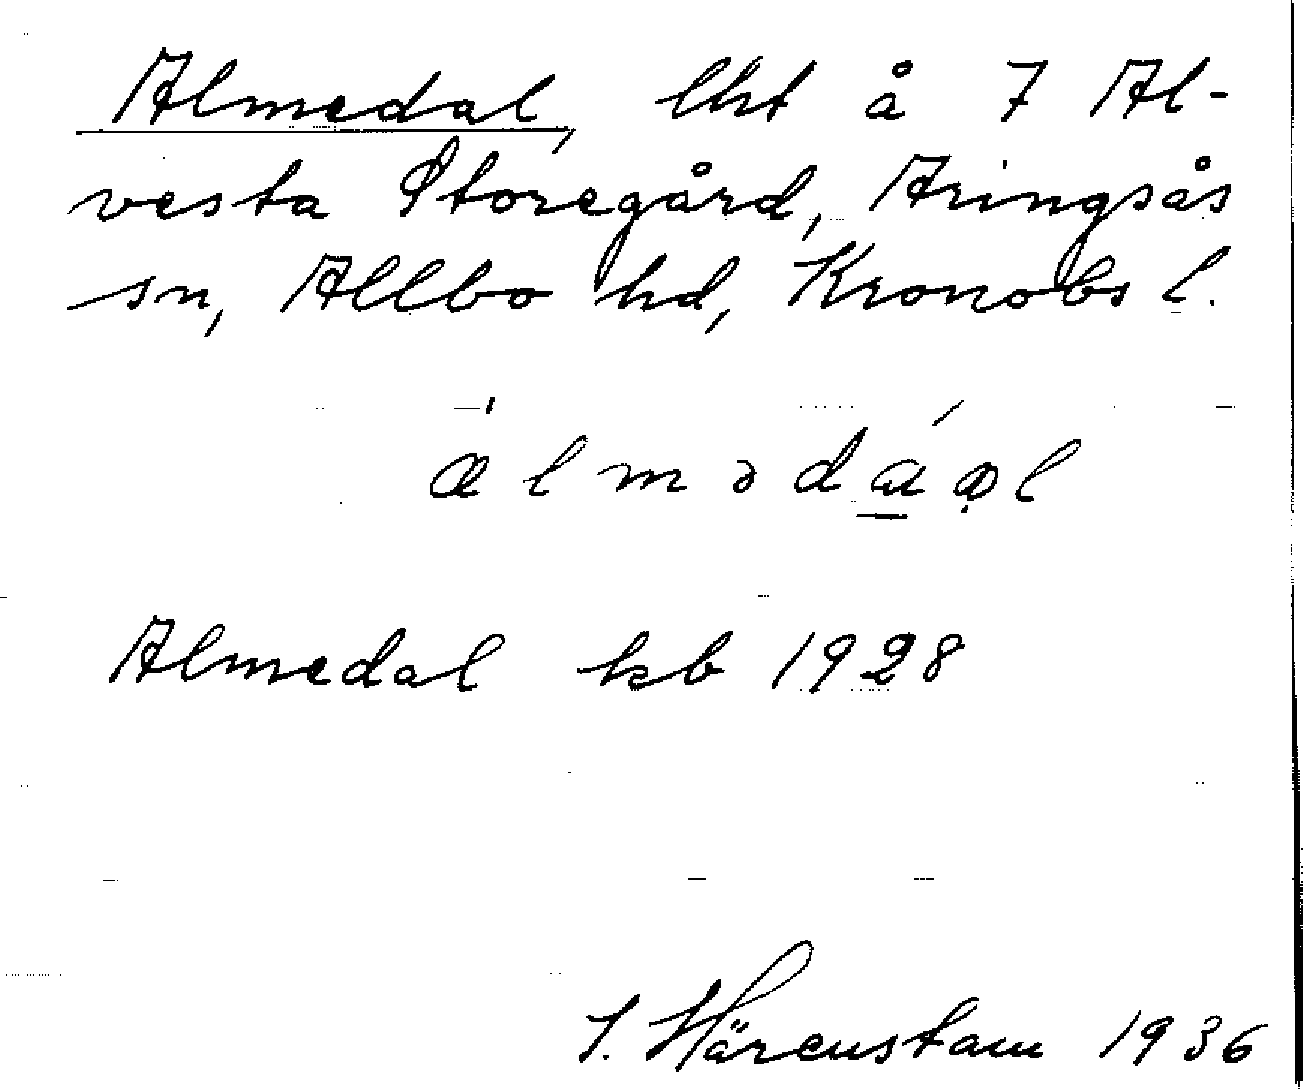 Almedal, lht å 7 Al-
vesta Storegård, Aringsås
sn, Allbo hd, Kronobs l.
Almedal kb 1928
S. Härenstam 1936